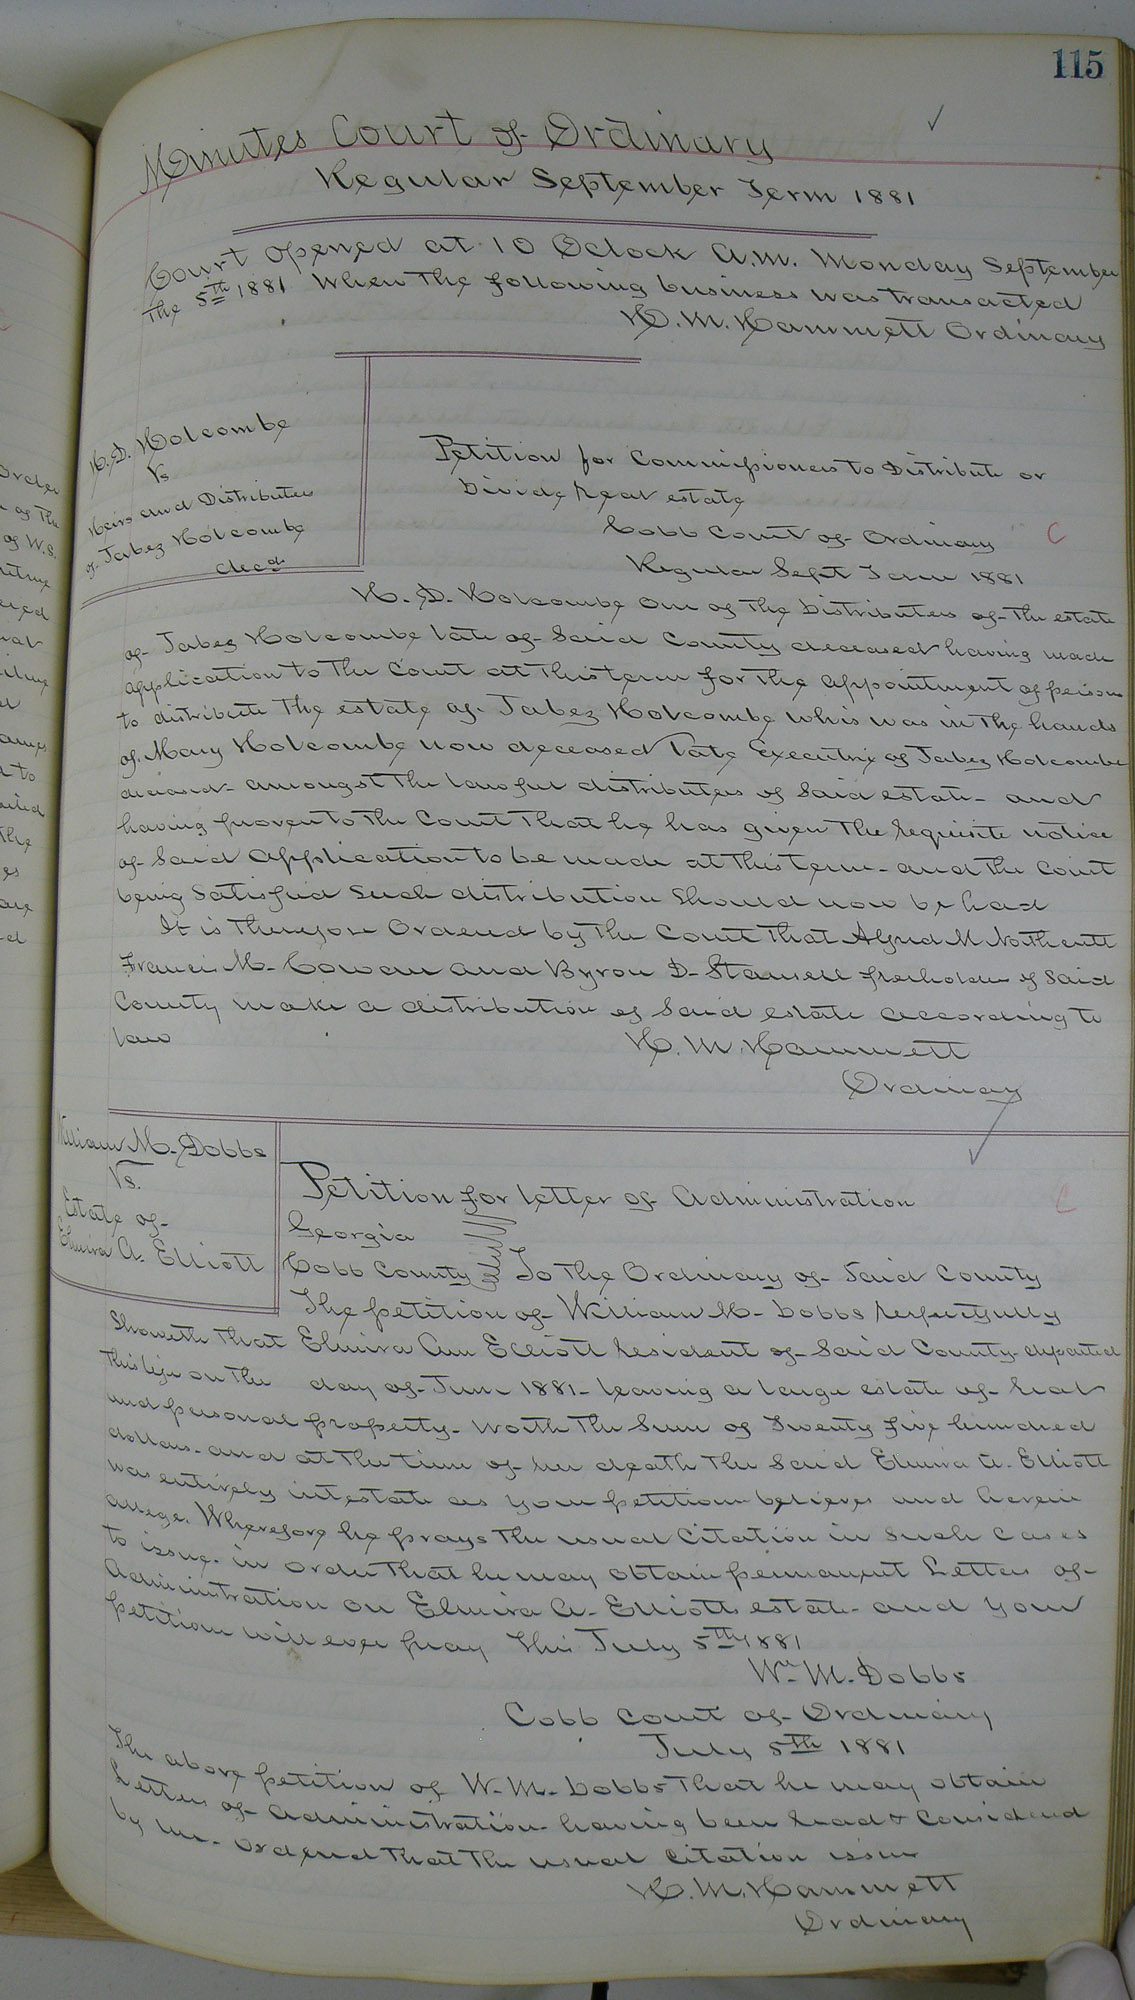 115
Minutes Court of Ordinary
Regular September Term 1881
Court opened at 10 Oclock A.M. Monday September
the 5th 1881 When the following business was transacted
H. M. Hammett Ordinary
H. D. Holcombe
Vs
Heirs and Distributees
of Jabez Holcombe
decd
Petition for Commissioners to Distribute or
Divide Real estate
Cobb Court of Ordinary
C
Regular Sept Term 1881
H. D. Holcombe one of the Distributees of the estate
of Jabez Holcombe late of Said County deceased having made
application to the Court at this term for the appointment of persons
to distribute the estate of Jabez Holcombe which was in the hands
of Mary Holcombe now deceased late Executrix of Jabez Holcombe
deceased amongst the lawful distributees of Said estate and
having proven to the Court that he has given the requisite notice
of Said application to be made at this term and the Court
being Satisfied Such distribution Should now be had
It is Therefore Ordered by the Court that Alfred M Northcutt
Francis M. Cowan and Byron D. Stansell freeholders of Said
County make a distribution of Said estate according to
law
H. M. Hammett
Ordinary
William M. Dobbs
Vs.
Estate of
Elmira A. Elliott
Petition for letter of Administration
C
Georgia
Cobb County To the Ordinary of Said County
The petition of William M. Dobbs respectfully
Showeth that Elmira Ann Elliott resident of Said County departed
this life on the day of June 1881 leaving a large estate of real
and personal property worth the Sum of Twenty five hundred
dollars and at the time of her death the Said Elmira A. Elliott
was entirely intestate as your petitioner believes and herein
allege. Wherefore he prays the usual Citation in Such cases
to issue in order that he may obtain permanent Letters of
Administration on Elmira A. Elliotts estate and your
petitioner will ever pray This July 5th 1881
Wm M. Dobbs
Cobb Court of Ordinary
July 5th 1881
The above petition of W. M. Dobbs that he may obtain
Letters of Administration having been read & Considered
by me Ordered that the usual Citation issue
H. M. Hammett
Ordinary